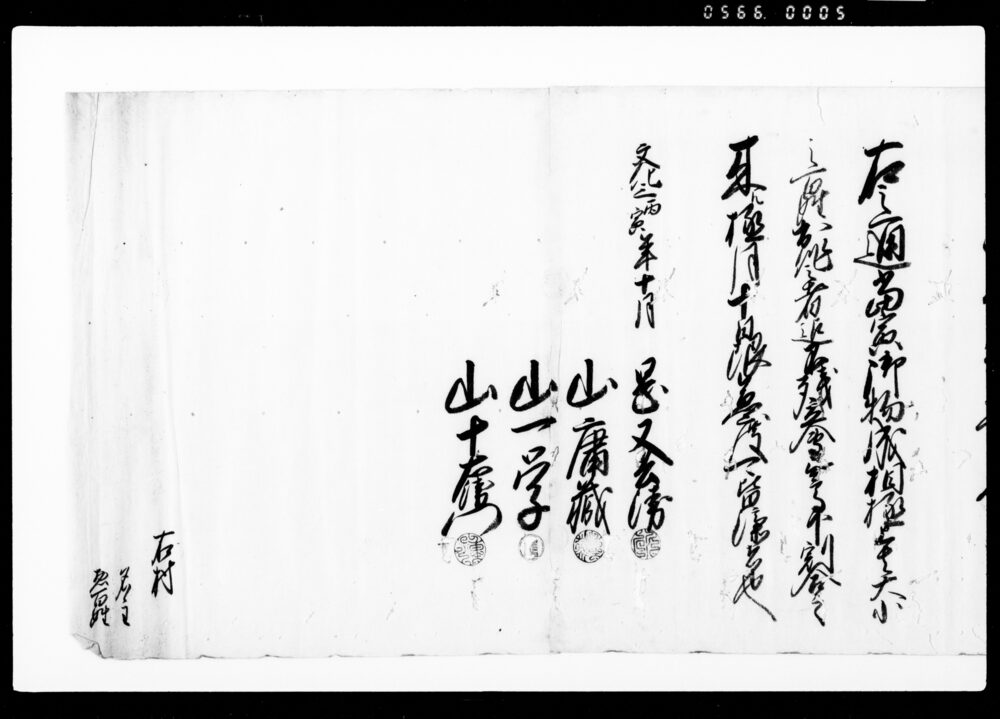 0566 0005
右之通当寅御物成相極条大小
之百姓出作之者迄不残立会無高下割合之
来ル極月十日限急度可皆済者也
文化三丙寅年十月
又
山庸蔵
山一学
山十
右村
名主
惣百姓